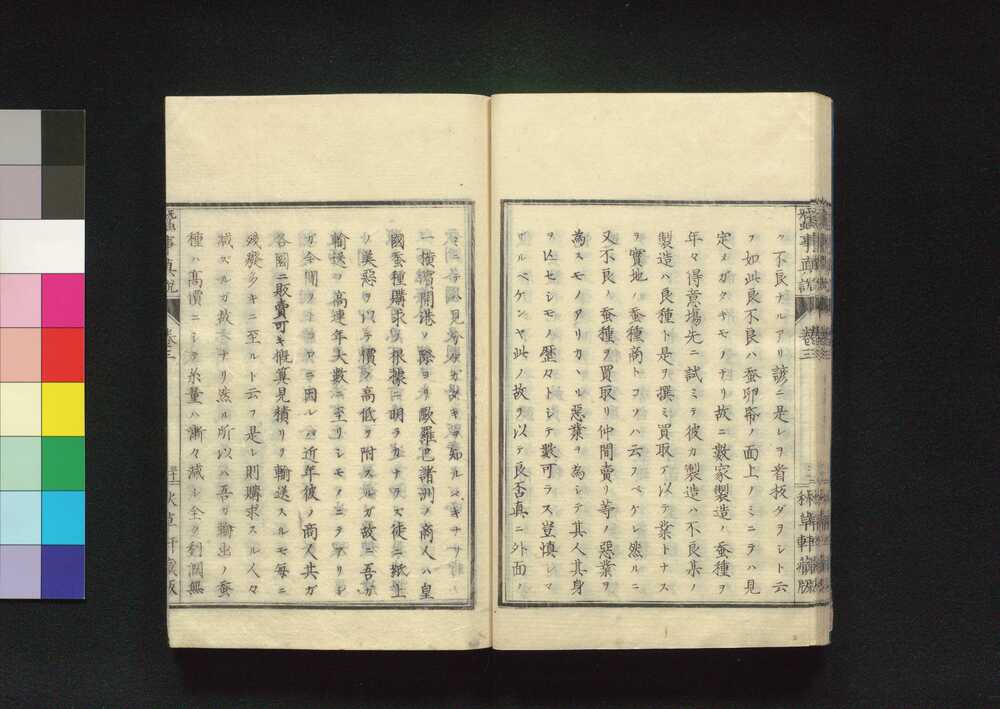 ク不良ナルアリ諺ニ是レヲ看板ダヲシト云
フ如此良不良ハ蚕卵帋ノ面上ノミニテハ見
定メガタキモノナリ故ニ數家製造ノ蚕種ヲ
年々得意場先ニ試ミテ彼カ製造ハ不良某ノ
製造ハ良種ト是ヲ撰ミ買取テ以テ業トナス
ヲ實地ノ蚕種商トコソハ云フベケレ然ルニ
又不良ノ蚕種ヲ買取リ仲間賣リ等ノ惡業ヲ
為スモノタリカヽル惡業ヲ為シテ其人其身
ヲ亡セシモノ歴々トシテ數可ラス豈慎マ
ザルベケンヤ此ノ故ヲ以テ良否真ニ外面ノ
蚕事真説 卷三
ミニテハ見分ケガタキヲ知ルベキナリ
一橫濱開港ノ際ヨリ歐羅巴諸洲ノ商人ハ皇
國蚕種購求ノ根據ニ明ラカナラス徒ニ紙上
ノ美惡ヲ以テ價ノ高低ヲ附スルガ故ニ吾ガ
輸送ノ高連年大數ニ至リシモノニテアリシ
ガ今聞ク
各國ニ販賣可キ概算見積リ輸送スルモ毎ニ
殘廢多キニ至ルト云フ是レ則購求スル人々
減スルガ故ナリ然ル所以ハ吾ガ輸出ノ蚕
種ハ高價ニシテ糸量ハ漸々減シ全ク利潤無
蚕事真説 卷三